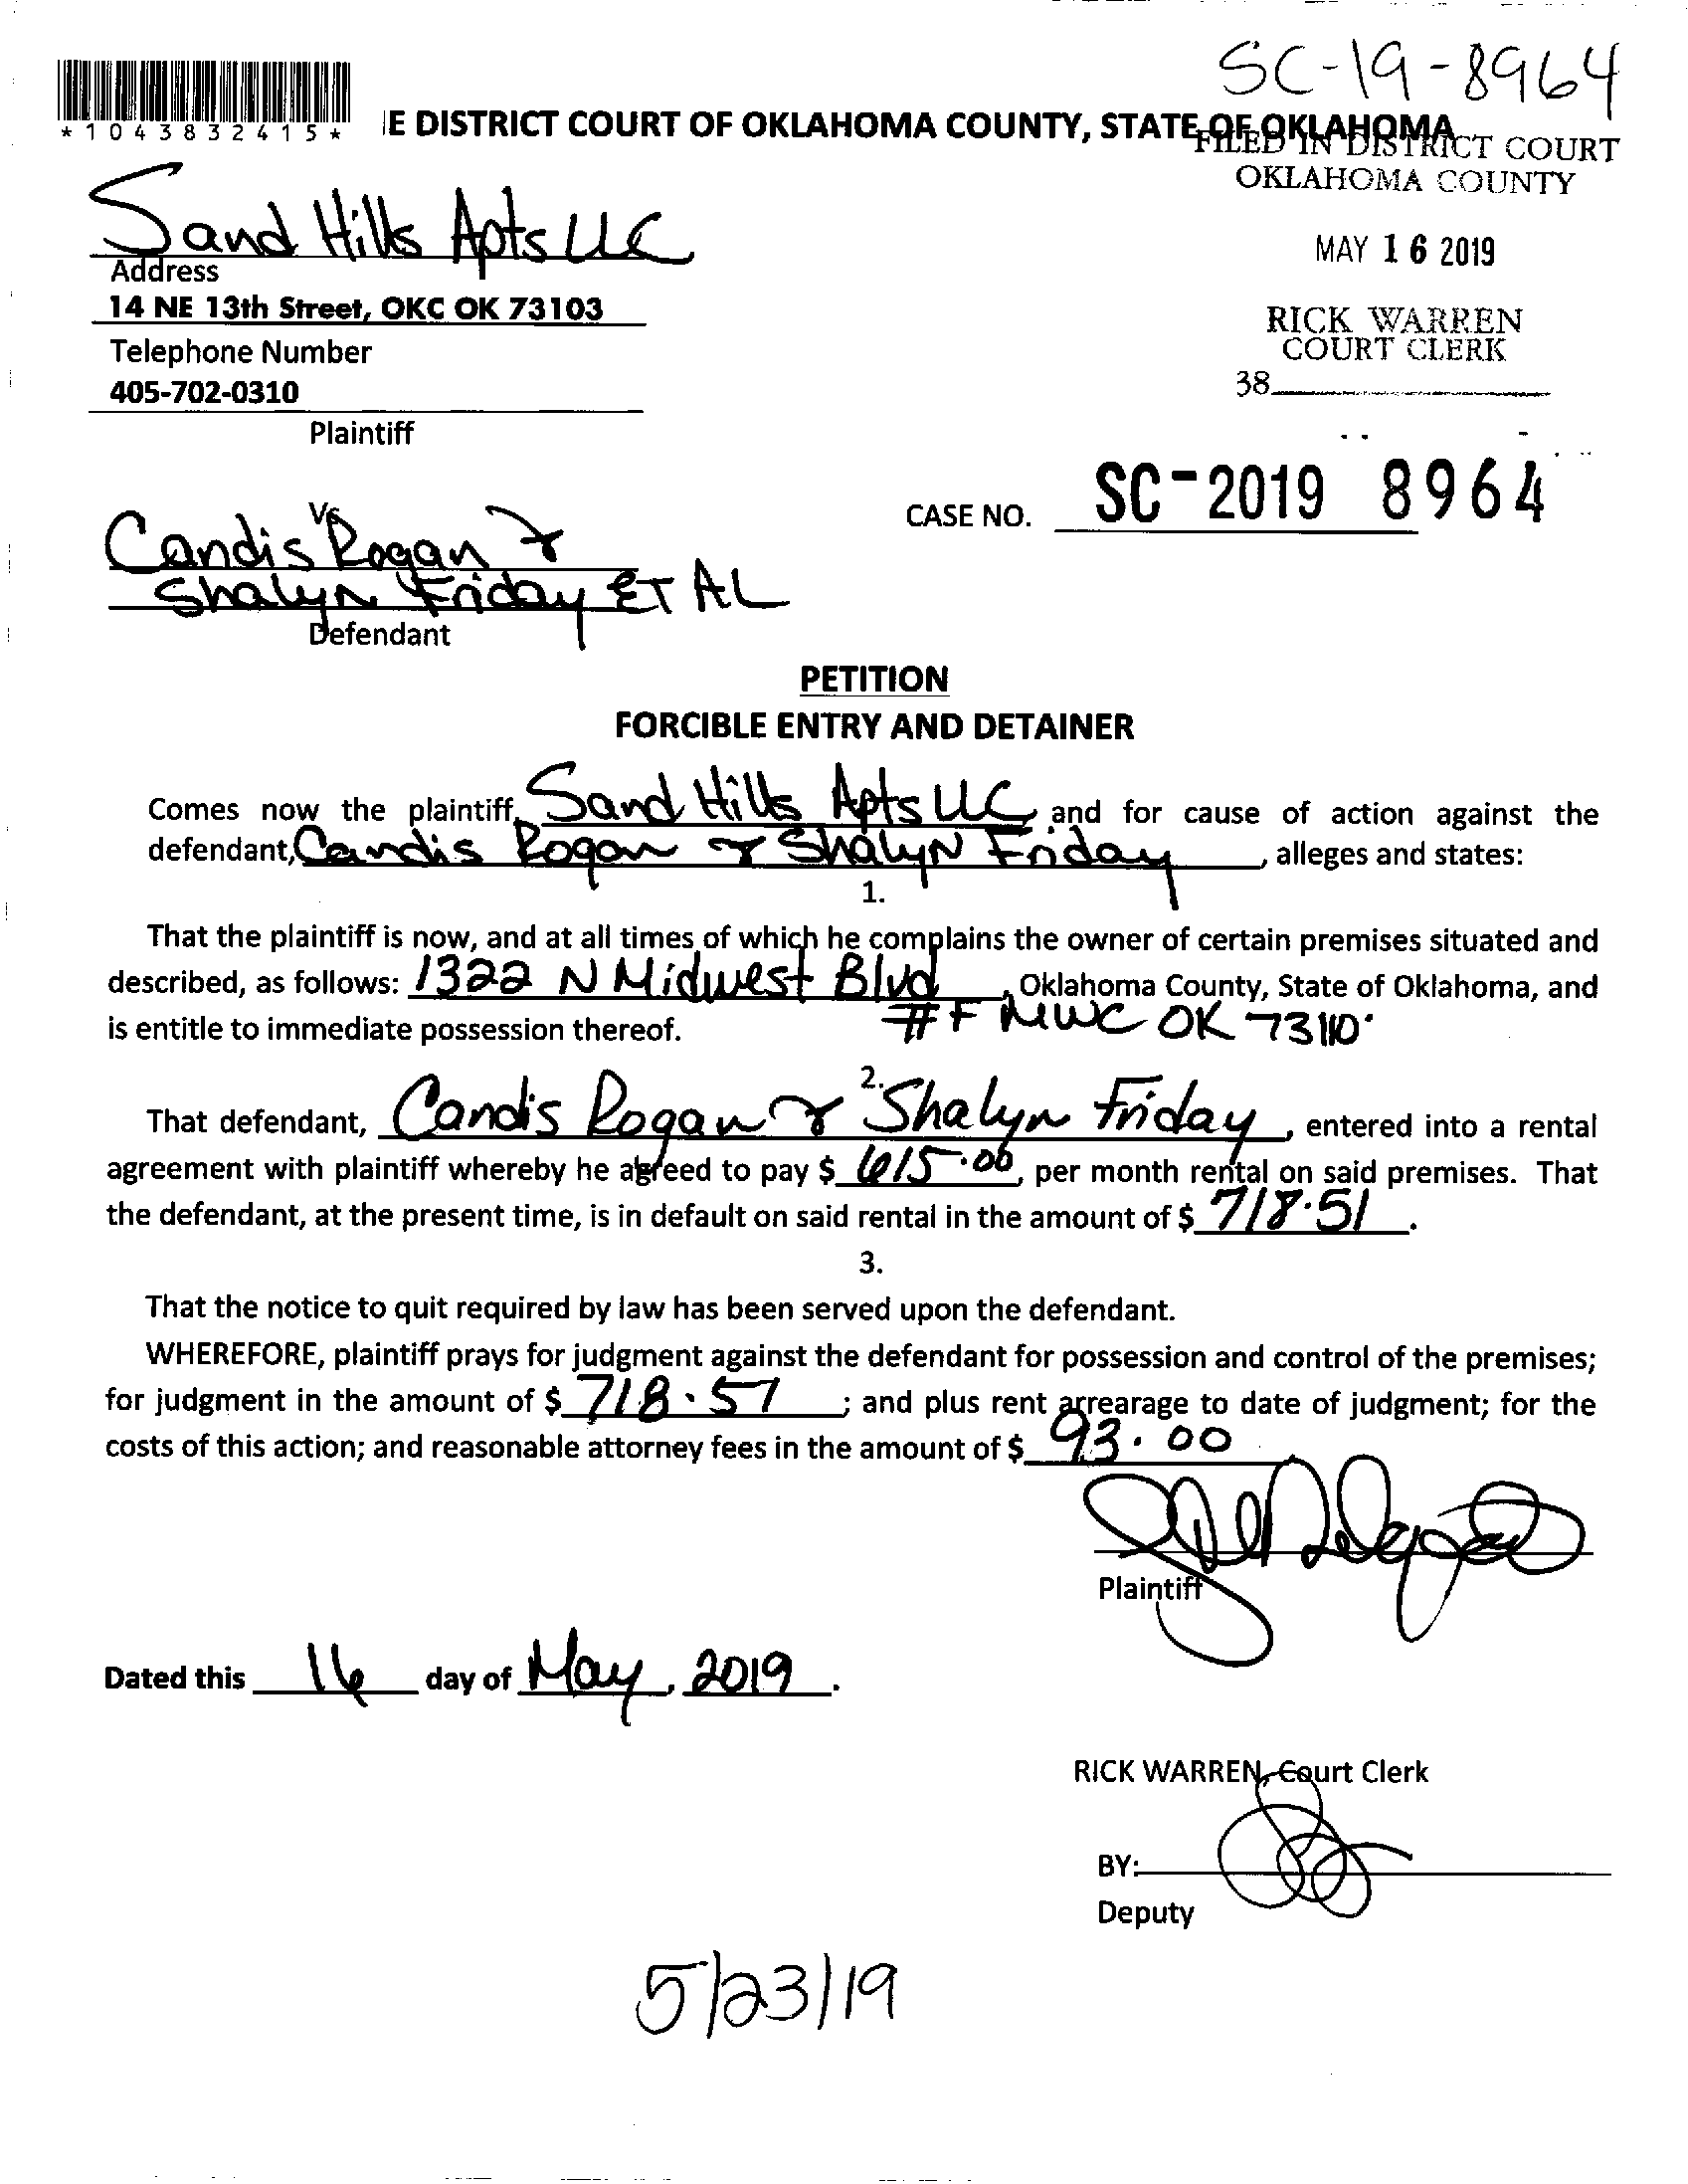 SC-19-8964
*1043832415*
IE DISTRICT COURT OF OKLAHOMA COUNTY, STATE OF OKLAHOMA
FILED IN DISTRICT COURT
OKLAHOMA COUNTY
Sand Hills Apts LLC
MAY 16 2019
Address
14 NE 13th Street, OKC OK 73103
RICK WARREN
COURT CLERK
Telephone Number
405-702-0310
38
Plaintiff
CASE NO. SC-2019 8964
Vs
Candis Rogan &
Shalyn Friday ET AL
Defendant
PETITION
FORCIBLE ENTRY AND DETAINER
Comes now the plaintiff, Sand Hills Apts LLC, and for cause of action against the
defendant, Candis Rogan & Shalyn Friday, alleges and states:
1.
That the plaintiff is now, and at all times of which he complains the owner of certain premises situated and
described, as follows: 1322 N Midwest Blvd, Oklahoma County, State of Oklahoma, and
#F MWC OK 73110
is entitle to immediate possession thereof.
2.
That defendant, Candis Rogan & Shalyn Friday, entered into a rental
agreement with plaintiff whereby he agreed to pay $ 615.00, per month rental on said premises. That
the defendant, at the present time, is in default on said rental in the amount of $ 718.51.
3.
That the notice to quit required by law has been served upon the defendant.
WHEREFORE, plaintiff prays for judgment against the defendant for possession and control of the premises;
for judgment in the amount of $ 718.57; and plus rent arrearage to date of judgment; for the
costs of this action; and reasonable attorney fees in the amount of $ 93.00
Plaintiff
Dated this 16 day of May, 2019.
RICK WARREN, Court Clerk
BY:
Deputy
5/23/19